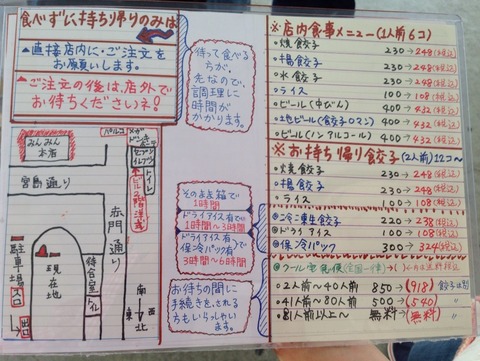 食べずに持ち帰りのみは
▲直接店内に・ご注文を
お願いします。
▲ご注文の後は、店外で
お待ちくださいネ!
待って食べる
方が、
先なので、
調理に
時間が
かかります。
みんみん
本店
宮島通り
パルコ
メガ
ドンキホーテ
セブン
イレブン
トイレ
赤門通り
駐車場
入口
出口
現在地
待合室
トイレ
南
西
東
北
そのまま箱で
1時間
ドライアイス有で
1時間〜3時間
ドライアイス有りで
保冷パック有
3時間〜6時間
お待ちの間に
手続きをされる
方もいらっしゃい
ます。
※店内食事メニュー(1人前6コ)
・焼餃子 230→248(税込)
・揚餃子 230→248(税込)
・水餃子 230→248(税込)
・ライス 100→108(税込)
・ビール(中びん) 400→432(税込)
・地ビール(餃子ロマン) 400→432(税込)
・ビール(ノンアルコール) 400→432(税込)
※お持ち帰り餃子(2人前)12コ〜
・焼餃子 230→248(税込)
・揚餃子 230→248(税込)
・ライス 100→108(税込)
◎冷凍生餃子 220→238(税込)
◎ドライアイス 100→108(税込)
◎保冷パック 300→324(税込)
◎クール宅急便(全国一律)
・2人前〜40人前 850→(918)餃子は別
・41人前〜80人前 500→(540)〃
・81人前以上〜 無料→(無料)〃